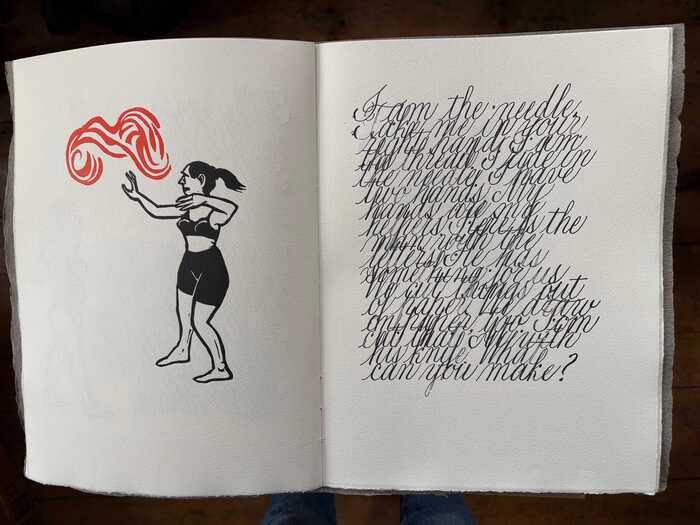 I am the needle.
Take me in your
left hand. I am
the thread. I ride in
the needle. I have
two hands. My
hands are my
helpers. Here is the
man with the
letters. He has
something for us
to cut
of paper. to draw
on
his knife. What
can you make?